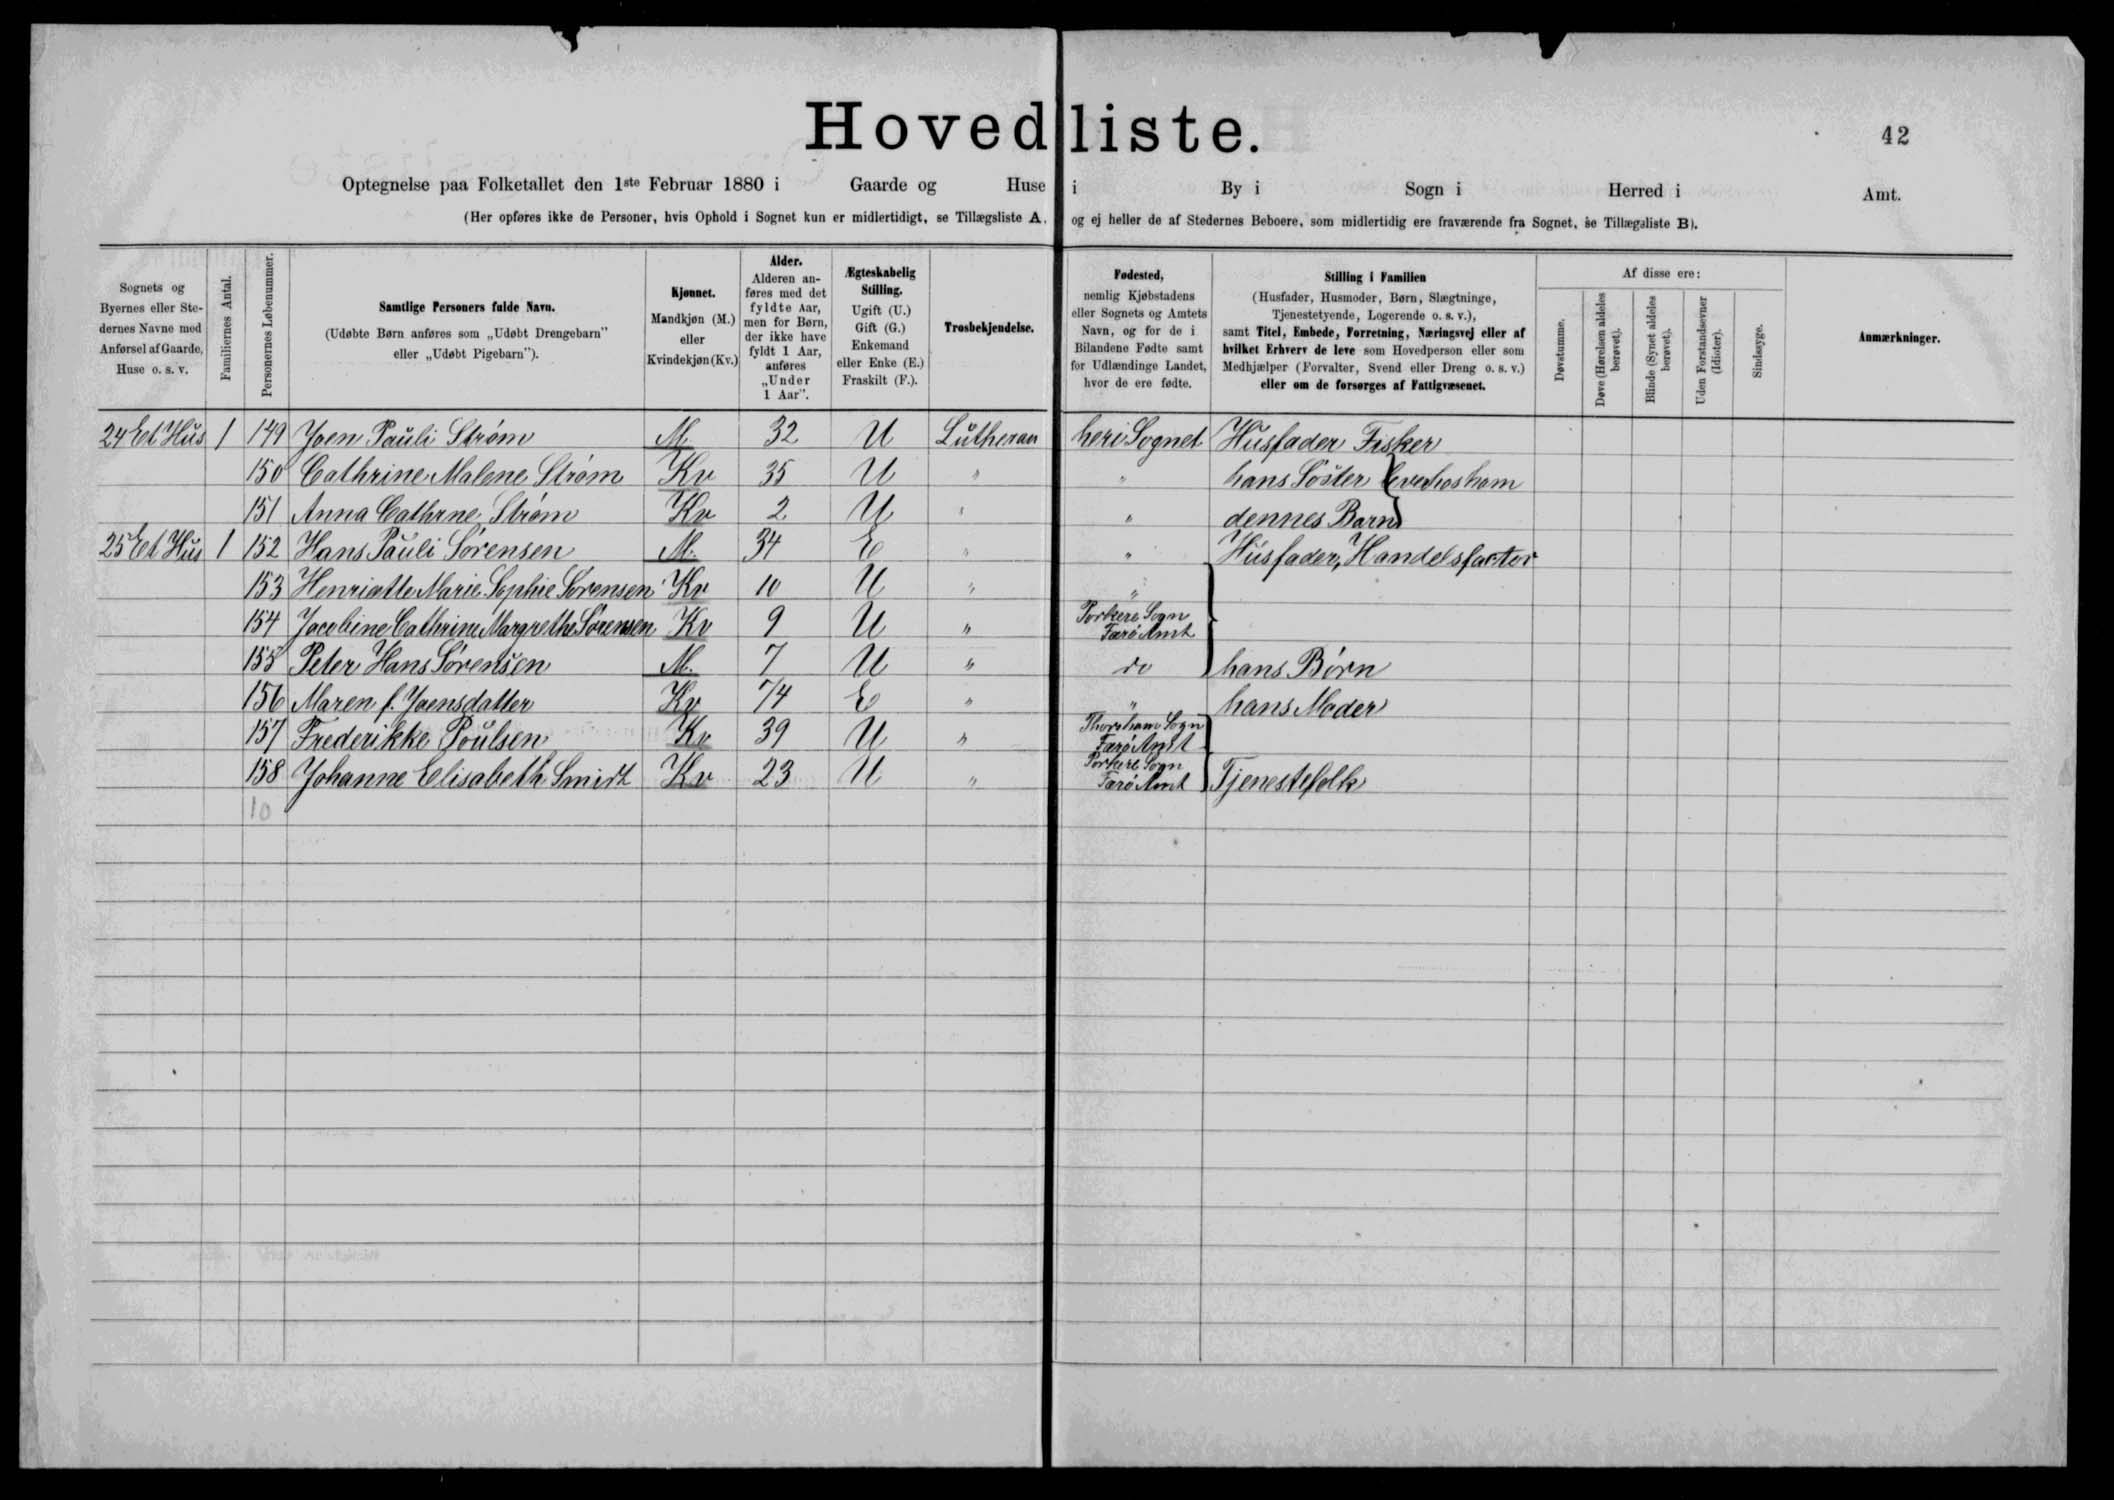 Hovedliste.
42
Optegnelse paa Folketallet den 1ste Februar 1880 i Gaarde og Huse i By i Sogn i Herred i Amt.
(Her opføres ikke de Personer, hvis Ophold i Sognet kun er midlertidigt, se Tillægsliste A, og ej heller de af Stedernes Beboere, som midlertidig ere fraværende fra Sognet, se Tillægsliste B).
Sognets og Byernes eller Stedernes Navne med Anførsel af Gaarde, Huse o. s. v.
Familiernes Antal.
Personernes Løbenummer.
Samtlige Personers fulde Navn.
(Udøbte Børn anføres som „Udøbt Drengebarn" eller „Udøbt Pigebarn").
Kjønnet.
Mandkjøn (M.) eller Kvindekjøn (Kv.)
Alder.
Alderen anføres med det fyldte Aar, men for Børn, der ikke have fyldt 1 Aar, anføres „Under 1 Aar".
Ægteskabelig Stilling.
Ugift (U.) Gift (G.) Enkemand eller Enke (E.) Fraskilt (F.).
Trosbekjendelse.
Fødested,
nemlig Kjøbstadens eller Sognets og Amtets Navn, og for de i Bilandene Fødte samt for Udlændinge Landet, hvor de ere fødte.
Stilling i Familien
(Husfader, Husmoder, Børn, Slægtninge, Tjenestetyende, Logerende o. s. v.), samt Titel, Embede, Forretning, Næringsvej eller af hvilket Erhverv de leve som Hovedperson eller som Medhjælper (Forvalter, Svend eller Dreng o. s. v.) eller om de forsørges af Fattigvæsenet.
Af disse ere:
Døvstumme.
Døve (Hørelsen aldeles berøvet).
Blinde (Synet aldeles berøvet).
Uden Forstandsevner (Idioter).
Sindssyge.
Anmærkninger.
24 Et Hus 1 149 Joen Pauli Strøm M. 32 U Lutheran heri Sognet Husfader Fisker
150 Cathrine Malene Strøm Kv 35 U " " hans Søster
151 Anna Cathrne Strøm Kv 2 U " " dennes Barn
25 Et Hus 1 152 Hans Pauli Sørensen M. 34 E " " Husfader, Handelsfactor
153 Henriette Marie Sophie Sørensen Kv 10 U " "
154 Jacobine Cathrine Margrethe Sørensen Kv 9 U " Porkere Sogn Færø Amt
155 Peter Hans Sørensen M. 7 U " do hans Børn
156 Maren f. Joensdatter Kv 74 E " " hans Moder
157 Frederikke Poulsen Kv 39 U " Thorshavn Sogn Færø Amt
158 Johanne Elisabeth Smidt Kv 23 U " Porkere Sogn Færø Amt Tjenestefolk
10